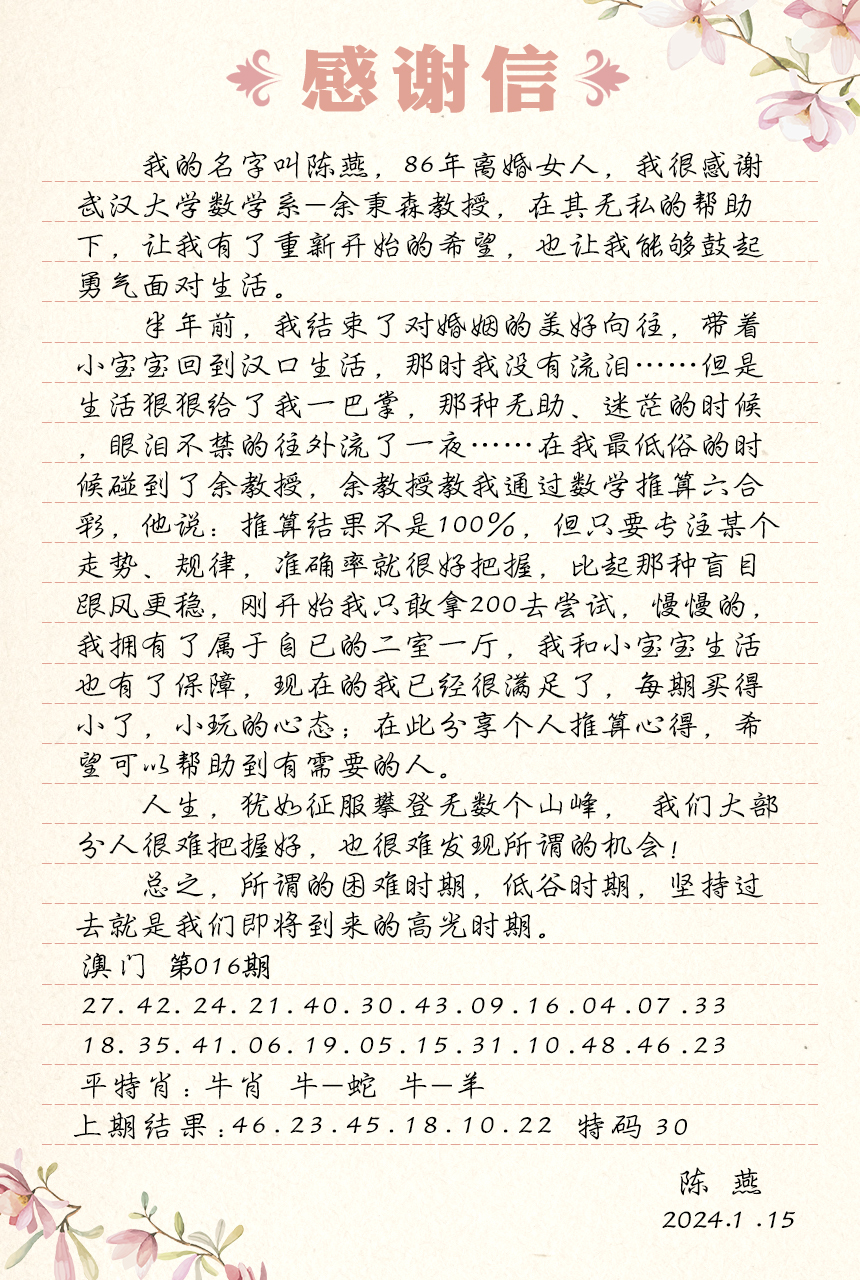 感谢信
我的名字叫陈燕，86年离婚女人，我很感谢
武汉大学数学系—余秉森教授，在其无私的帮助
下，让我有了重新开始的希望，也让我能够鼓起
勇气面对生活。
半年前，我结束了对婚姻的美好向往，带着
小宝宝回到汉口生活，那时我没有流泪……但是
生活狠狠给了我一巴掌，那种无助、迷茫的时候
，眼泪不禁的往外流了一夜……在我最低俗的时
候碰到了余教授，余教授教我通过数学推算六合
彩，他说：推算结果不是100%，但只要专注某个
走势、规律，准确率就很好把握，比起那种盲目
跟风更稳，刚开始我只敢拿200去尝试，慢慢的，
我拥有了属于自已的二室一厅，我和小宝宝生活
也有了保障，现在的我已经很满足了，每期买得
小了，小玩的心态；在此分享个人推算心得，希
望可以帮助到有需要的人。
人生，犹如征服攀登无数个山峰， 我们大部
分人很难把握好，也很难发现所谓的机会！
总之，所谓的困难时期，低谷时期，坚持过
去就是我们即将到来的高光时期。
澳门 第016期
27.42.24.21.40.30.43.09.16.04.07.33
18.35.41.06.19.05.15.31.10.48.46.23
平特肖：牛肖 牛—蛇 牛—羊
上期结果：46.23.45.18.10.22 特码 30
陈 燕
2024.1.15